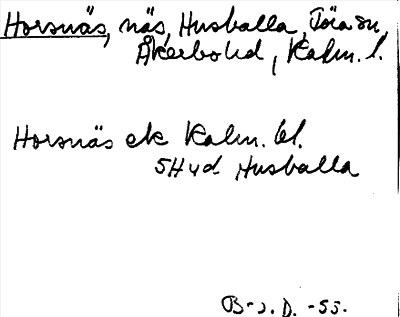 Horsnäs, näs, Husvalla, Föra sn,
Åkerbo hd, Kalm. l.
Horsnäs ek Kalm. bl.
5H vd Husvalla
B-s. D. -55.